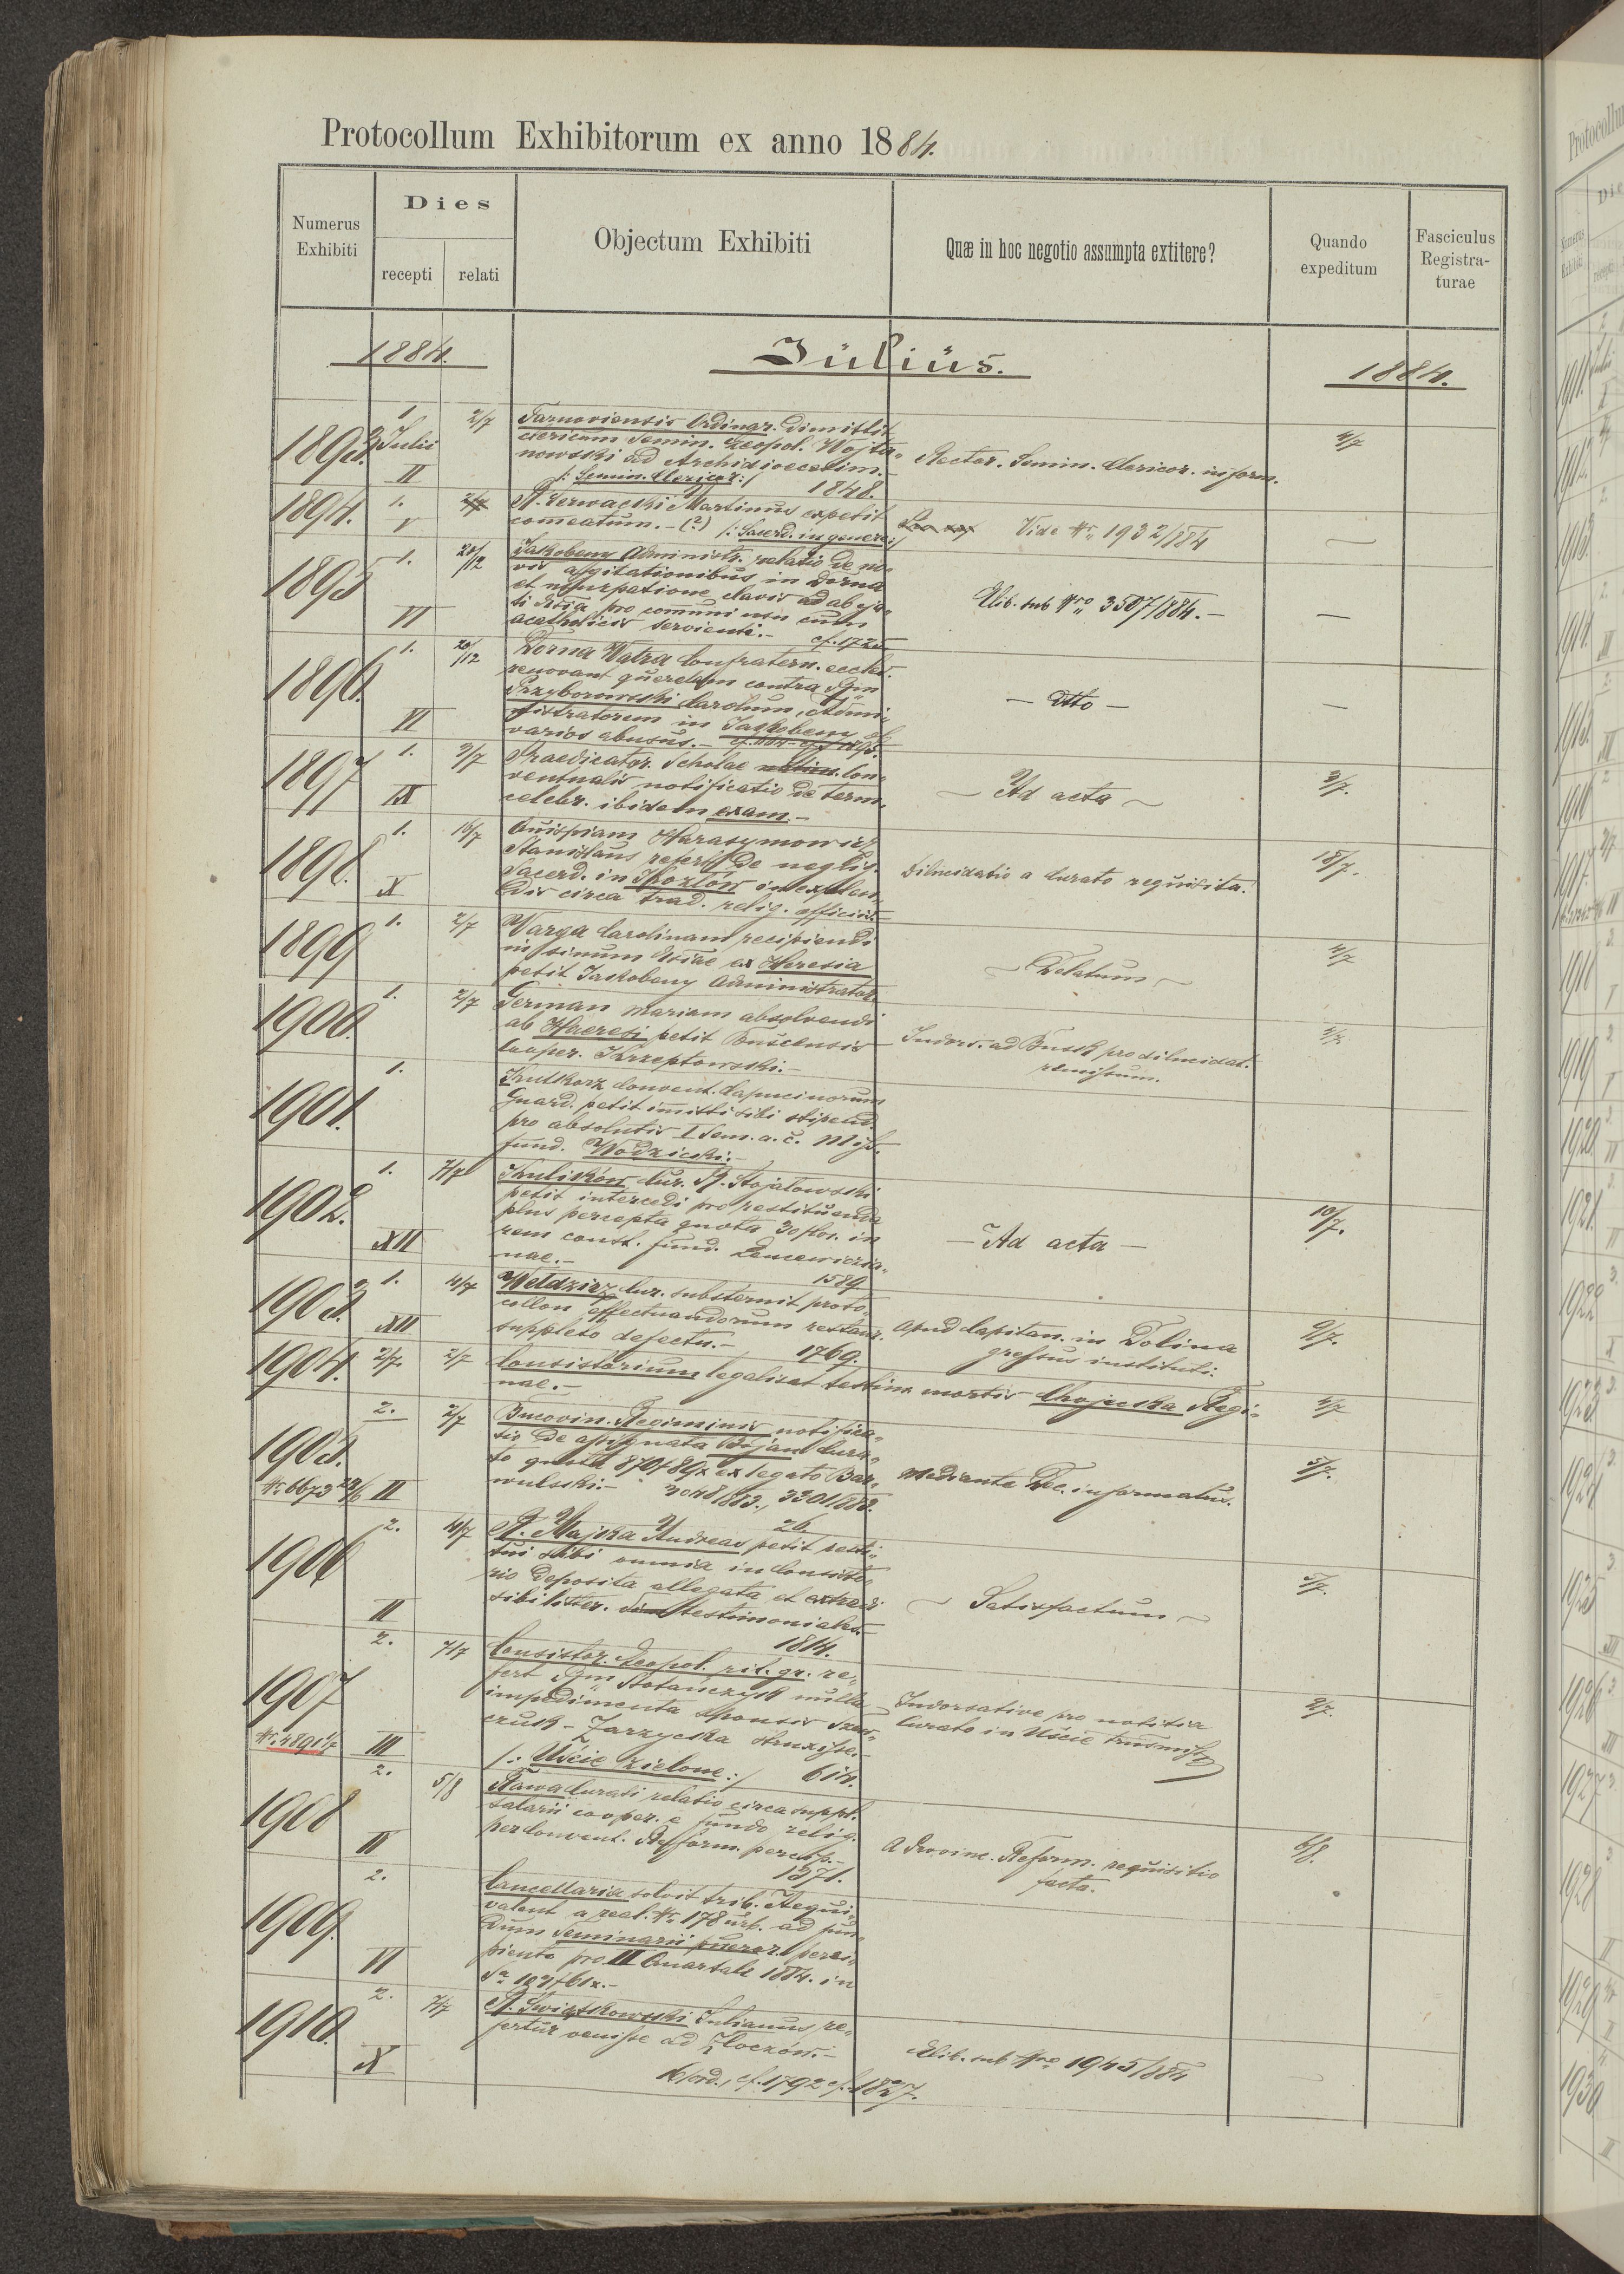 Protocollum Exhibitorum ex anno 1884.
Numerus Exhibiti
Dies
recepti
relati
Objectum Exhibiti
Quæ in hoc negotio assumpta extitere?
Quando expeditum
Fasciculus Registra-
turae
1884.
Julius.
1884.
1893.
1 Julii
II
2/7
Tarnoviensis Ordinar. dimittit
clericum Semin. Leopol. Wojta„
nowski ad Archidioecesim.-
/: Semin. Clericor:/ 1848.
Rector. Semin. Clericor. inform.
4/7
1894.
1.
V
R. Czerwacki Martinus expetit
comeatum.- (?) /: Sacerd. in genere:/
Vide Nr 1932/884
1895
1.
VI
20/12
Jakobeny Administr. relatio de no„
vis agitationibus in Dorna
et usurpatione clavis ad
pro communi usu cum
acatholicis servienti.- cf. 1725
Elib. sub Nro 3507/884.-
—
1896.
1.
VI
20/12
Dorna Watra Confratern. eccles.
renovant querelam contra
Przyborowski Carolum, Admi„
nistratorem in Jakobeny ob
varios abusus.-
— dtto —
—
1897
1.
IX
3/7
Praedicator. Scholae Con„
ventualis notificatio de term.
celebr. ibidem exam.-
— Ad acta —
3/7.
1898.
1.
X
16/7
Cuispiam Harasymowicz
Stanislaus refert de neglig.
Sacerd. in Kozłów in explen„
dis circa trad. relig. officiis.
Dilucidatio a Curato requisita.
18/7.
1899
1.
2/7
Warga Carolinam recipiendi
in sinum Eccae ex Heresia
petit Jakobeny Administrator
— Relatum —
4/7
1900.
1.
2/7
German Mariam absolvendi
ab Haeresi petit Buscensis
Cooper. Krzeptowski.-
Indors. ad Busk pro dilucidat.
remissum.
4/7.
1901.
1.
Kutkorz Convent. Capucinorum
Guard. petit imitti sibi stipend.
pro absolutis I Sem. a. c. Miss.
fund. Wodzicki.-
1902.
1.
XII
7/7
Kulików Cur. R. Stojałowski
petit intercedi pro restituenda
plus percepta quota 30 flor. in
rem const. fund. Lencewiczia„
nae.- 1589
— Ad acta —
10/7.
1903.
1.
XII
4/7
Wełdzirz Cur. substernit proto„
collon effectuandorum restaur.
suppleto defectu.- 1769.
apud Capitan. in Dolina
gressus instituti.
9/7.
1904.
2/7.
2/7
Consistorium legalisat testim mortis Chojecka Regi„
nae.-
4/7
1905.
Nr 6673
2.
II
2/7
Bucovin. Regiminis notifica„
tio de assignata Bojan Cura„
to quota 870 f 89x ex legato Bar„
wulski.- 3048/883., 3301/883.
mediante Dec. informatus.
5/7.
1906
2.
II
4/7
26.
R. Majka Andreas petit resti„
tui sibi omnia in Consisto„
rio deposita allegata et extradi
sibi litter. testimoniales.-
1814.
— Satisfactum —
5/7.
1907
2.
III
7/7
Consistor. Leopol. rit. gr. re„
fert nulla
impedimenta sponsis
czuk - Zarzycka obruxisse.-
/: Uście zielone:/ 614.
Indorsative pro notitia
Curato in Uście trasmiss
9/7.
1908
2.
II
5/8
Rawa Curati relatio circa suppl.
salarii cooper. e fundo relig.
per Convent. Reform. percep.-
1571.
A Provinc. Reform. requisitio
facta.
6/8.
1909.
2.
VI
Cancellaria solvit trib. Aequi„
valent a real. Nr 178 urb. ad fun„
dum Seminarii pueror. perci„
piente pro III Quartale 1884. in
1910.
2.
X
7/7
R. Swiątkowski Julianus re„
fertur venisse ad Złoczów.-
cf. 1792 cf. 1827.
Elib. sub Nro 1945/884